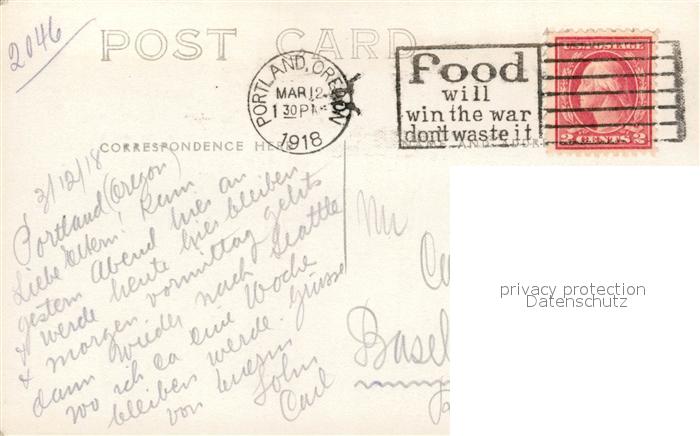 2046
POST CARD
PORTLAND, OREGON
MAR 12
1 30 PM
1918
Food
will
win the war
don't waste it
U.S. POSTAGE
2 CENTS 2
CORRESPONDENCE HERE
NAME AND ADDRE
3/12/18
Portland (Oregon)
Liebe Eltern! Kam
gestern Abend hier an
& werde heute hier bleiben
& morgen vormittag gehts
dann wieder nach Seattle
wo ich ca eine Woche
bleiben werde. Grüsse
von Eurem Sohn
Carl
Mr
Ca
Basel
privacy protection
Datenschutz